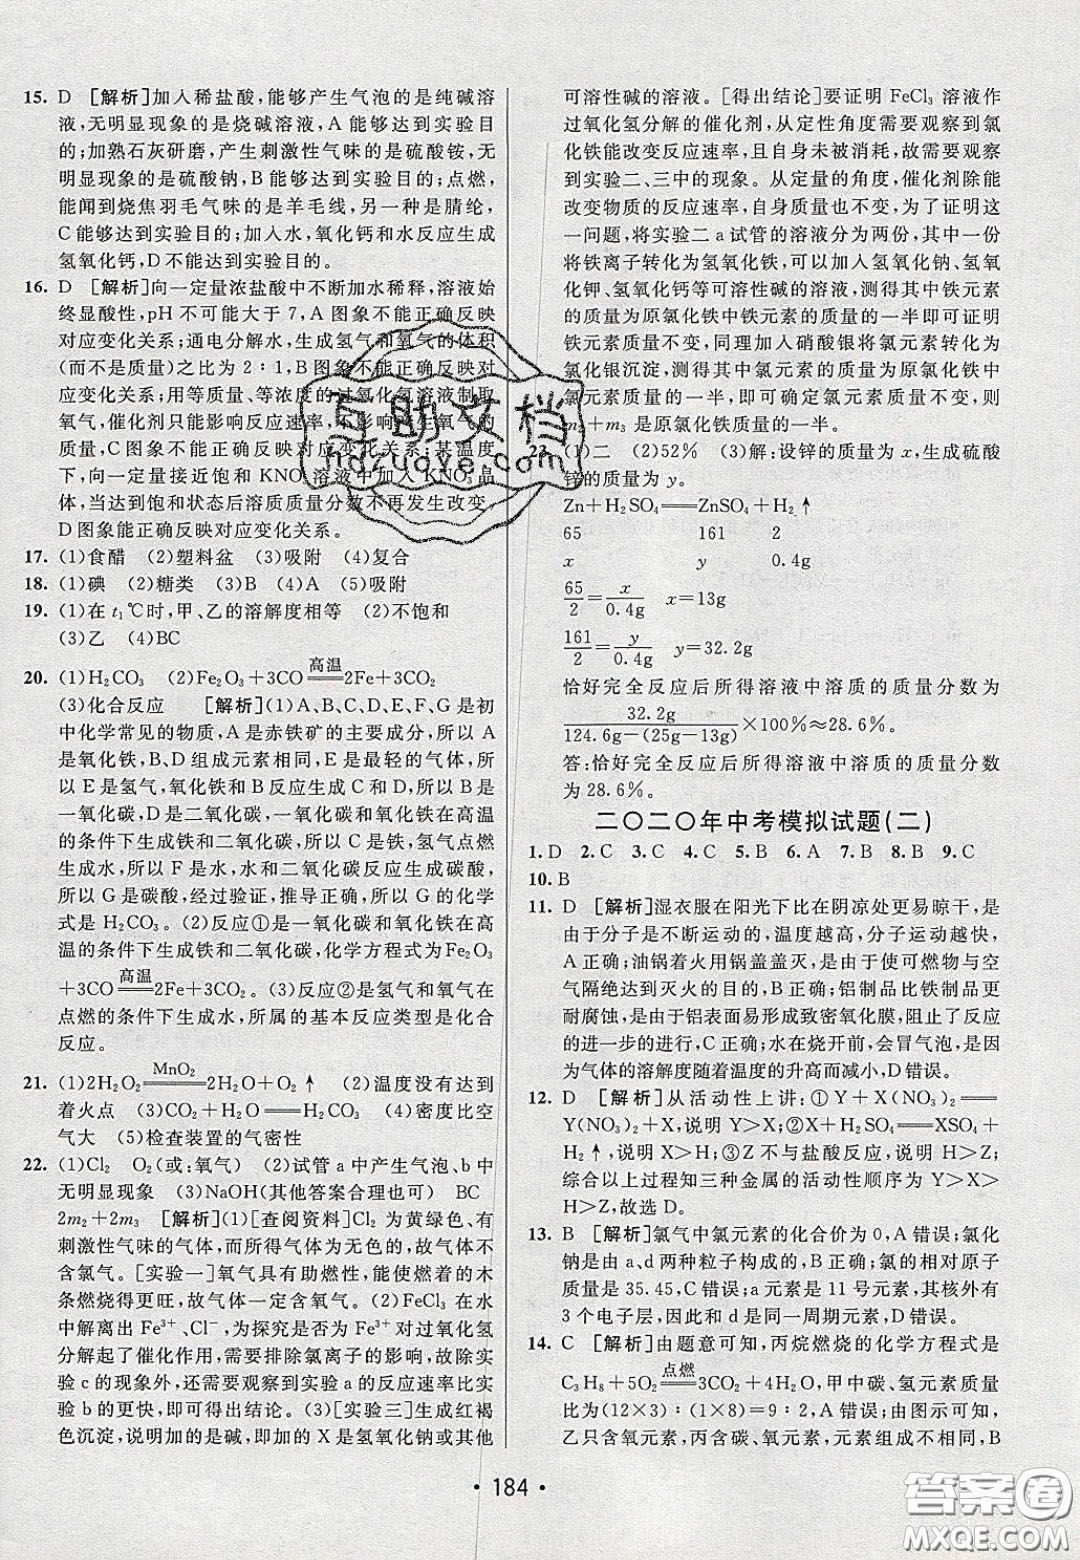 15. D [解析]加入稀盐酸,能够产生气泡的是纯碱溶
液,无明显现象的是烧碱溶液,A能够达到实验目
的;加熟石灰研磨,产生刺激性气味的是硫酸铵,无
明显现象的是硫酸钠,B能够达到实验目的;点燃,
能闻到烧焦羽毛气味的是羊毛线,另一种是腈纶,
C能够达到实验目的;加入水,氧化钙和水反应生成
氢氧化钙,D不能达到实验目的。
16. D [解析]向一定量浓盐酸中不断加水稀释,溶液始
终显酸性,pH不可能大于7,A图象不能正确反映
对应变化关系;通电分解水,生成氢气和氧气的体积
(而不是质量)之比为2∶1,B图象不能正确反映对
应变化关系;用等质量、等浓度的过氧化氢溶液制取
氧气,催化剂只能影响反应速率,不影响产生氧气的
质量,C图象不能正确反映对应变化关系;某温度
下,向一定量接近饱和KNO₃溶液中加入KNO₃晶
体,当达到饱和状态后溶质质量分数不再发生改变,
D图象能正确反映对应变化关系。
17. (1)食醋 (2)塑料盆 (3)吸附 (4)复合
18. (1)碘 (2)糖类 (3)B (4)A (5)吸附
19. (1)在t₁℃时,甲、乙的溶解度相等 (2)不饱和
(3)乙 (4)BC
20. (1)H₂CO₃ (2)Fe₂O₃+3CO 高温═══ 2Fe+3CO₂
(3)化合反应 [解析](1)A、B、D、E、F、G是初
中化学常见的物质,A是赤铁矿的主要成分,所以A
是氧化铁,B、D组成元素相同,E是最轻的气体,所
以E是氢气,氧化铁和B反应生成C和D,所以B是
一氧化碳,D是二氧化碳,一氧化碳和氧化铁在高温
的条件下生成铁和二氧化碳,所以C是铁,氢气点燃
生成水,所以F是水,水和二氧化碳反应生成碳酸,
所以G是碳酸,经过验证,推导正确,所以G的化学
式是H₂CO₃。(2)反应①是一氧化碳和氧化铁在高
温的条件下生成铁和二氧化碳,化学方程式为Fe₂O₃
+3CO 高温═══ 2Fe+3CO₂。(3)反应②是氢气和氧气在
点燃的条件下生成水,所属的基本反应类型是化合
反应。
21. (1)2H₂O₂ MnO₂═══ 2H₂O+O₂↑ (2)温度没有达到
着火点 (3)CO₂+H₂O═══H₂CO₃ (4)密度比空
气大 (5)检查装置的气密性
22. (1)Cl₂ O₂(或:氧气) (2)试管a中产生气泡、b中
无明显现象 (3)NaOH(其他答案合理也可) BC
2m₂+2m₃ [解析](1)[查阅资料]Cl₂为黄绿色、有
刺激性气味的气体,而所得气体为无色的,故气体不
含氯气。[实验一]氧气具有助燃性,能使燃着的木
条燃烧得更旺,故气体一定含氧气。(2)FeCl₃在水
中解离出Fe³⁺、Cl⁻,为探究是否为Fe³⁺对过氧化氢
分解起了催化作用,需要排除氯离子的影响,故除实
验c的现象外,还需要观察到实验a的反应速率比实
验b的更快,即可得出结论。(3)[实验三]生成红褐
色沉淀,说明加的是碱,即加的X是氢氧化钠或其他
可溶性碱的溶液。[得出结论]要证明FeCl₃溶液作
过氧化氢分解的催化剂,从定性角度需要观察到氯
化铁能改变反应速率,且自身未被消耗,故需要观察
到实验二、三中的现象。从定量的角度,催化剂除能
改变物质的反应速率,自身质量也不变,为了证明这
一问题,将实验二a试管的溶液分为两份,其中一份
将铁离子转化为氢氧化铁,可以加入氢氧化钠、氢氧
化钾、氢氧化钙等可溶性碱的溶液,测得其中铁元素
的质量为原氯化铁中铁元素的质量的一半即可证明
铁元素质量不变,同理加入硝酸银将氯元素转化为
氯化银沉淀,测得其中氯元素的质量为原氯化铁中
氯元素质量的一半,即可确定氯元素质量不变,则
m₂+m₃是原氯化铁质量的一半。
23. (1)二 (2)52% (3)解:设锌的质量为x,生成硫酸
锌的质量为y。
Zn+H₂SO₄═══ZnSO₄+H₂↑
65 161 2
x y 0.4g
65/2=x/0.4g x=13g
161/2=y/0.4g y=32.2g
恰好完全反应后所得溶液中溶质的质量分数为
32.2g/(124.6g−(25g−13g))×100%≈28.6%。
答:恰好完全反应后所得溶液中溶质的质量分数
为28.6%。
二〇二〇年中考模拟试题(二)
1. D 2. C 3. C 4. C 5. B 6. A 7. B 8. B 9. C
10. B
11. D [解析]湿衣服在阳光下比在阴凉处更易晾干,是
由于分子是不断运动的,温度越高,分子运动越快,
A正确;油锅着火用锅盖盖灭,是由于使可燃物与空
气隔绝达到灭火的目的,B正确;铝制品比铁制品更
耐腐蚀,是由于铝表面易形成致密氧化膜,阻止了反应
的进一步的进行,C正确;水在烧开前,会冒气泡,是因
为气体的溶解度随着温度的升高而减小,D错误。
12. D [解析]从活动性上讲:①Y+X(NO₃)₂═══
Y(NO₃)₂+X,说明Y>X;②X+H₂SO₄═══XSO₄+
H₂↑,说明X>H;③Z不与盐酸反应,说明H>Z;
综合以上过程知三种金属的活动性顺序为Y>X>
H>Z,故选D。
13. B [解析]氯气中氯元素的化合价为0,A错误;氯化
钠是由a、d两种粒子构成的,B正确;氯的相对原子
质量为35.45,C错误;a元素是11号元素,其核外有
3个电子层,因此和d是同一周期元素,D错误。
14. C [解析]由题意可知,丙烷燃烧的化学方程式是
C₃H₈+5O₂ 点燃═══ 3CO₂+4H₂O,甲中碳、氢元素质量
比为(12×3)∶(1×8)=9∶2,A错误;由图示可知,
乙只含氧元素,丙含碳、氧元素,元素组成不相同,B
· 184 ·
互助文档
hdzuoye.com
答案圈
MXQE.COM